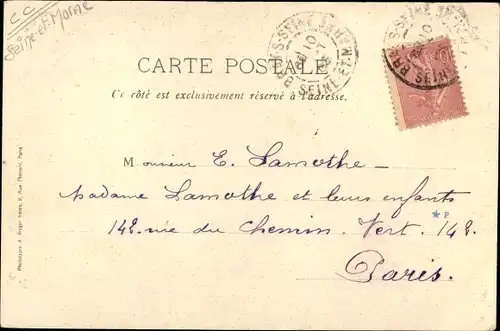 CC
Seine-et-Marne
CARTE POSTALE
Ce côté est exclusivement réservé à l'adresse.
Monsieur E. Lamothe -
Madame Lamothe et leurs enfants
142. rue du Chemin. Vert. 142.
Paris.